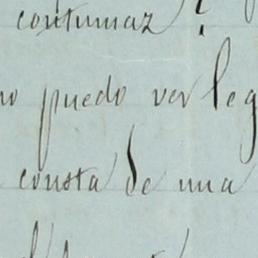 contumaz?
no puedo ver leg
consta de una